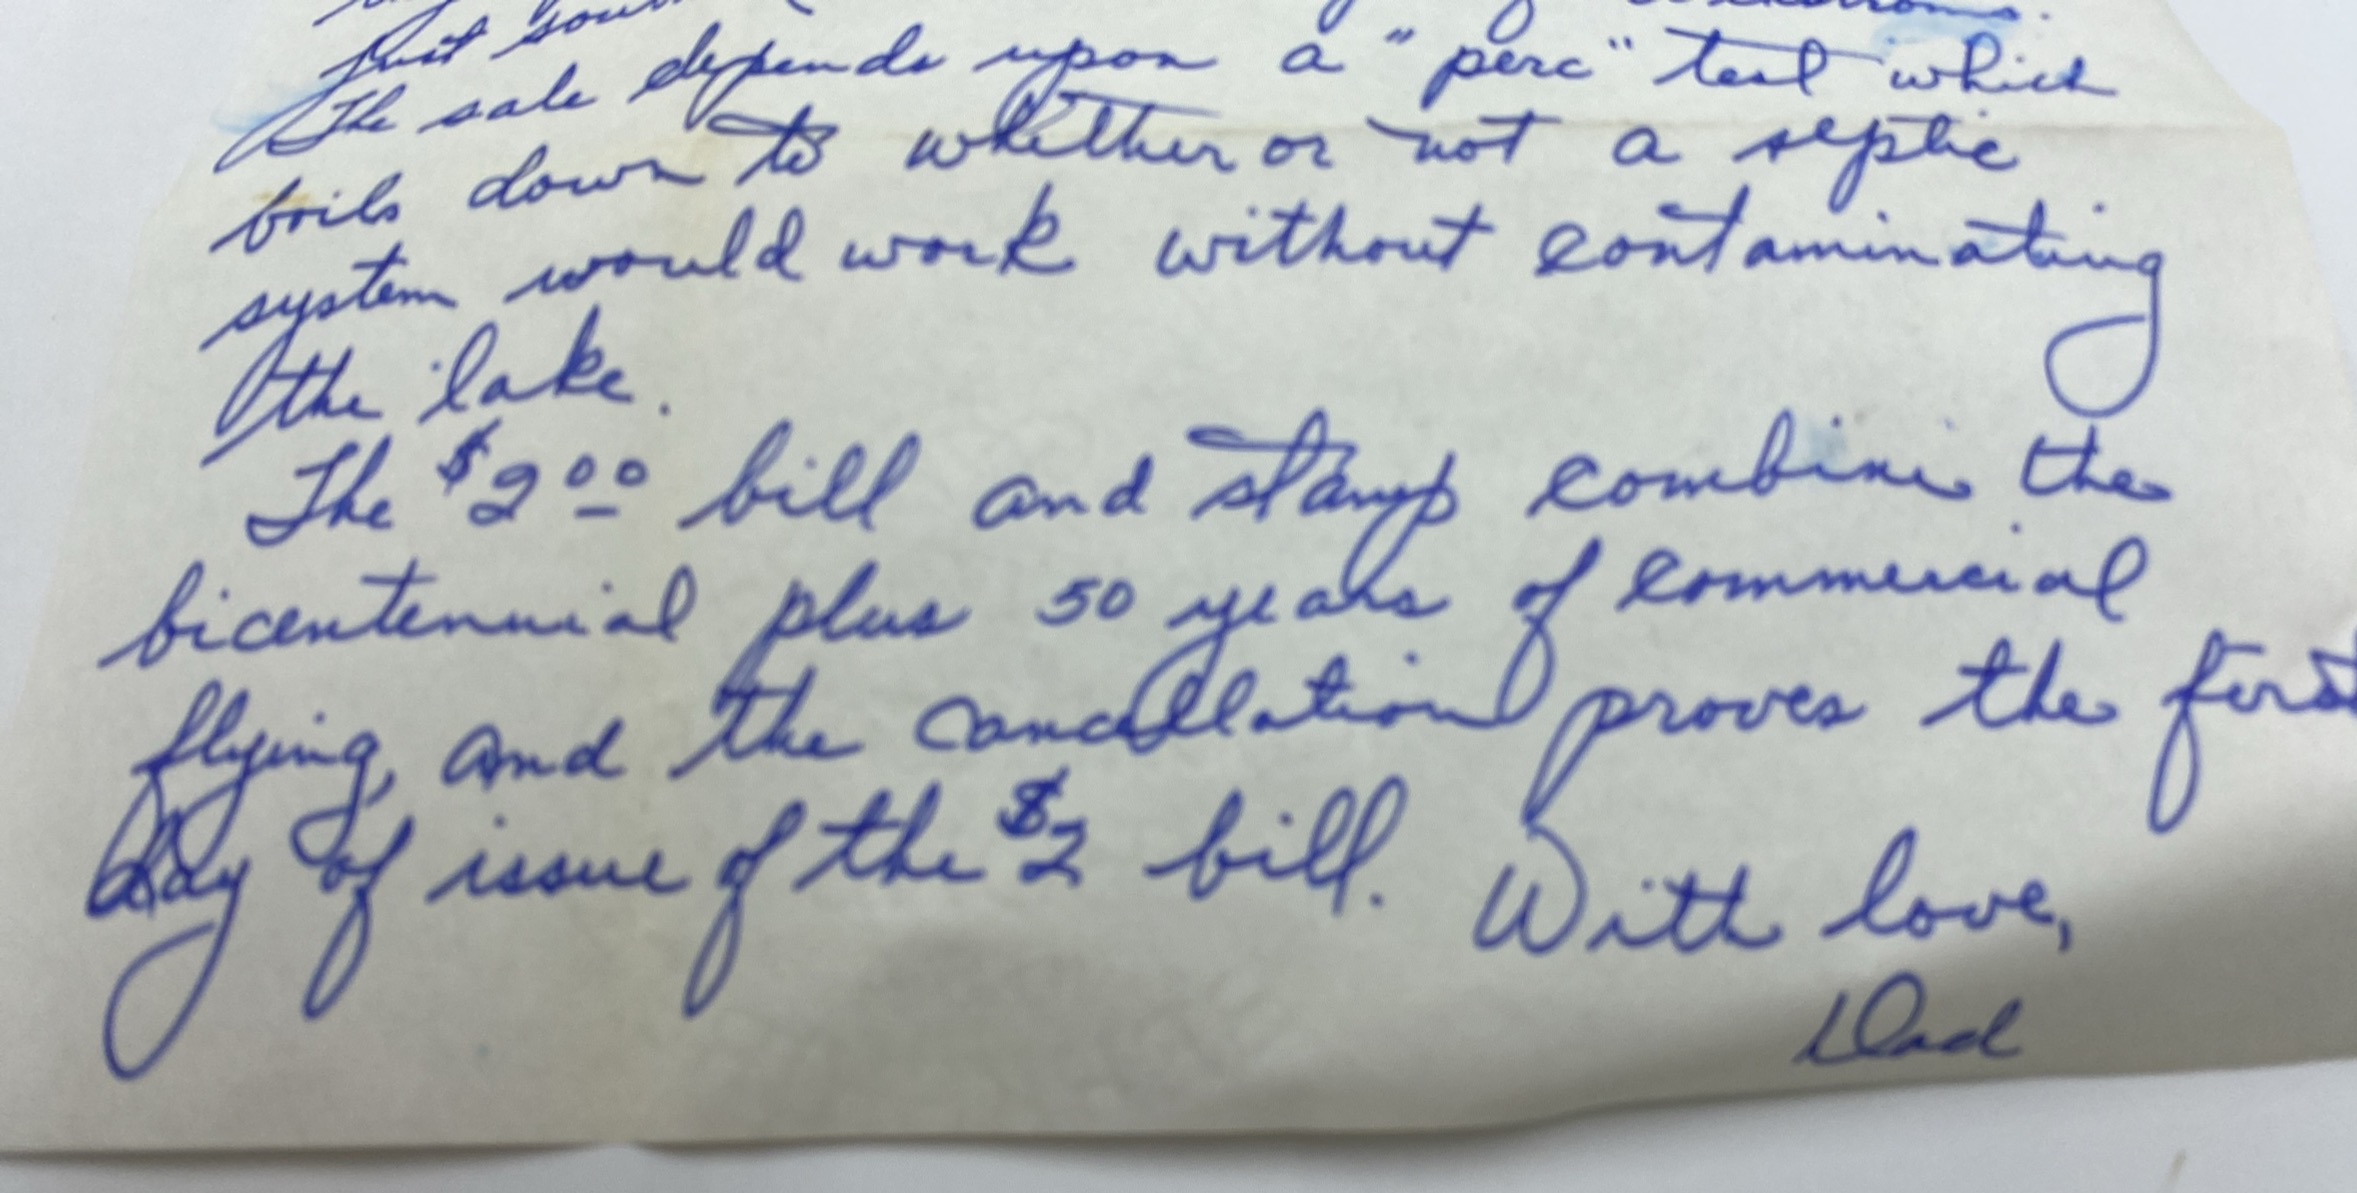 just south
The sale depends upon a "perc" test which
boils down to whether or not a septic
system would work without contaminating
the lake.
The $2.00 bill and stamp combine the
bicentennial plus 50 years of commercial
flying, and the cancellation proves the first
day of issue of the $2 bill. With love,
Dad